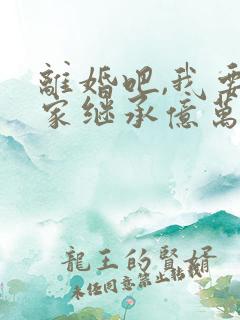 離婚吧,我要
家继承億萬
龍王的賢婿
未任同意禁止転載